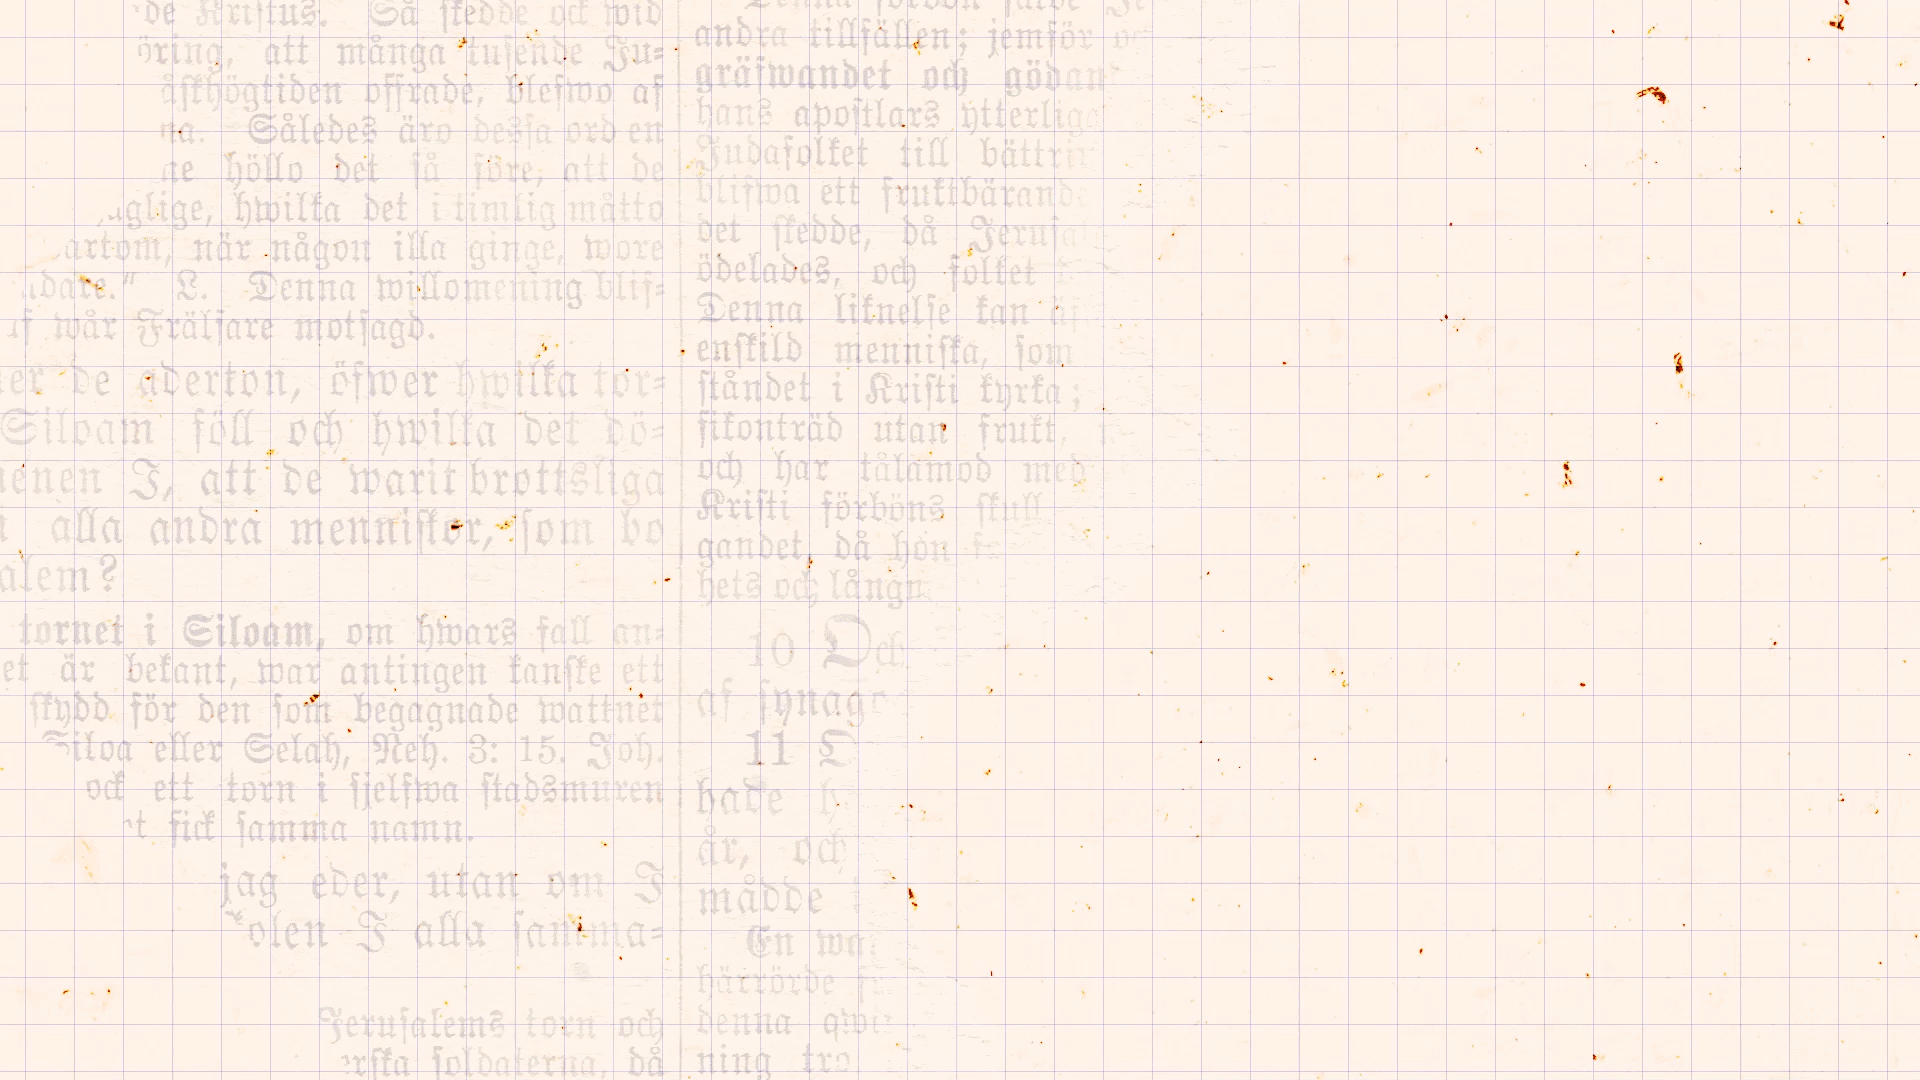 de Kristus. Så skedde ock wid
öring, att många tusende Ju=
åskhögtiden offrade, blefwo af
na. Således äro dessa ord en
ne höllo det så före, att de
glige, hwilka det i timlig måtto
artom, när någon illa ginge, wore
dare." L. Denna willomening blif=
af wår Frälsare motsagd.
ler de aderton, öfwer hwilka tor=
Siloam föll och hwilka det dö=
menen I, att de warit brottsliga
alla andra menniskor, som bo
alem?
tornet i Siloam, om hwars fall an=
et är bekant, war antingen kanske ett
skydd för den som begagnade wattnet
Siloa eller Selah, Neh. 3: 15. Joh.
ock ett torn i sjelfwa stadsmuren
t fick samma namn.
jag eder, utan om I
skolen I alla samma=
Jerusalems torn och
erska soldaterna, då
Denna förbön
andra tillfällen; jemför
gräfwandet och gödan
hans apostlars ytterliga
Judafolket till bättrin
blifwa ett fruktbärande
det skedde, då Jerusa
ödelades, och folket
Denna liknelse kan
enskild menniska, som
ståndet i Kristi kyrka;
fikonträd utan frukt,
och har tålamod med
Kristi förböns skull
gandet, då hon
hets och långm
10 Och
af synago
11
hade
år, och
mådde
En wa
härrörde
denna qwi
ning tro